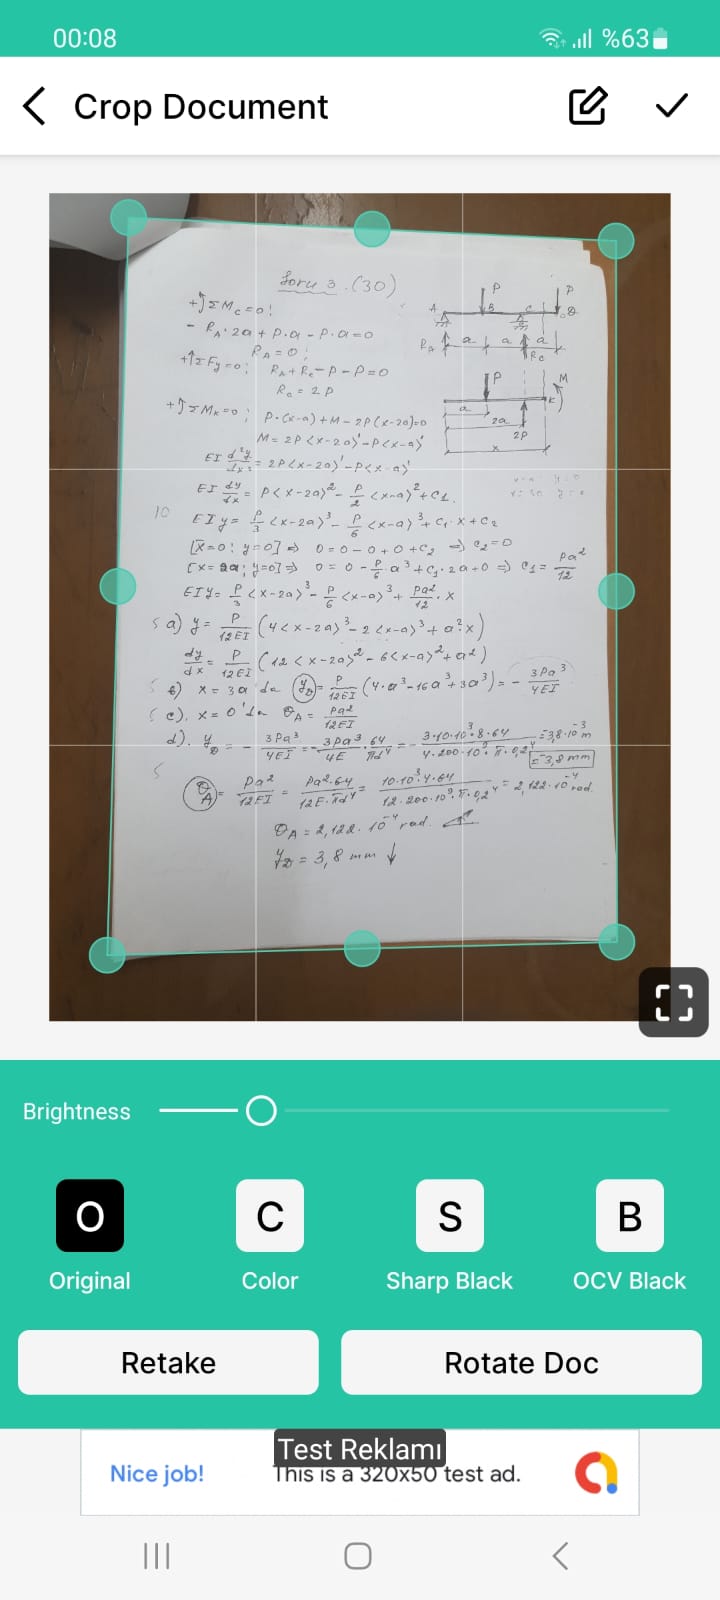 00:08
%63
Crop Document
Soru 3. (30)
+ΣM_c=0:
- R_A·2a + P·a - P·a=0
R_A=0;
+↑ΣFy=0; R_A+R_c-P-P=0
R_c = 2P
+ΣM_K=0; P·(x-a)+M-2P(x-2a)=0
M= 2P<x-2a>'-P<x-a>'
EI d²y/dx² = 2P<x-2a>'-P<x-a>'
EI dy/dx = P<x-2a>²- P/2 <x-a>²+C1.
10
EIy= P/3 <x-2a>³- P/6 <x-a>³+C1·x+C2
[x=0; y=0] ⇒ 0=0-0+0+C2 ⇒ C2=0
[x=2a; y=0] ⇒ 0=0-P/6·a³+C1·2a+0 ⇒ C1= Pa²/12
EIy= P/3 <x-2a>³- P/6 <x-a>³+ Pa²/12·x
5 a) y= P/12EI (4<x-2a>³-2<x-a>³+a²x)
dy/dx = P/12EI (12<x-2a>²-6<x-a>²+a²)
5 b) x=3a'da y_D= P/12EI (4·a³-16a³+3a³)= - 3Pa³/4EI
5 c). x=0'da θ_A= Pa²/12EI
d). y_D = - 3Pa³/4EI = - 3Pa³/4E · 64/πd⁴ = - 3·10·10³·8·64/4·200·10⁹·π·0,2⁴ =-3,8·10⁻³ m
=-3,8 mm
5
θ_A= Pa²/12EI = Pa²·64/12E·πd⁴ = 10·10³·4·64/12·200·10⁹·π·0,2⁴ = 2,122·10⁻⁴ rad.
θ_A = 2,122·10⁻⁴ rad.
y_D = 3,8 mm ↓
A P B C P D
R_A a a a R_C
P M
a K
2a
2P
x
Brightness
O C S B
Original Color Sharp Black OCV Black
Retake Rotate Doc
Test Reklamı
Nice job! This is a 320x50 test ad.